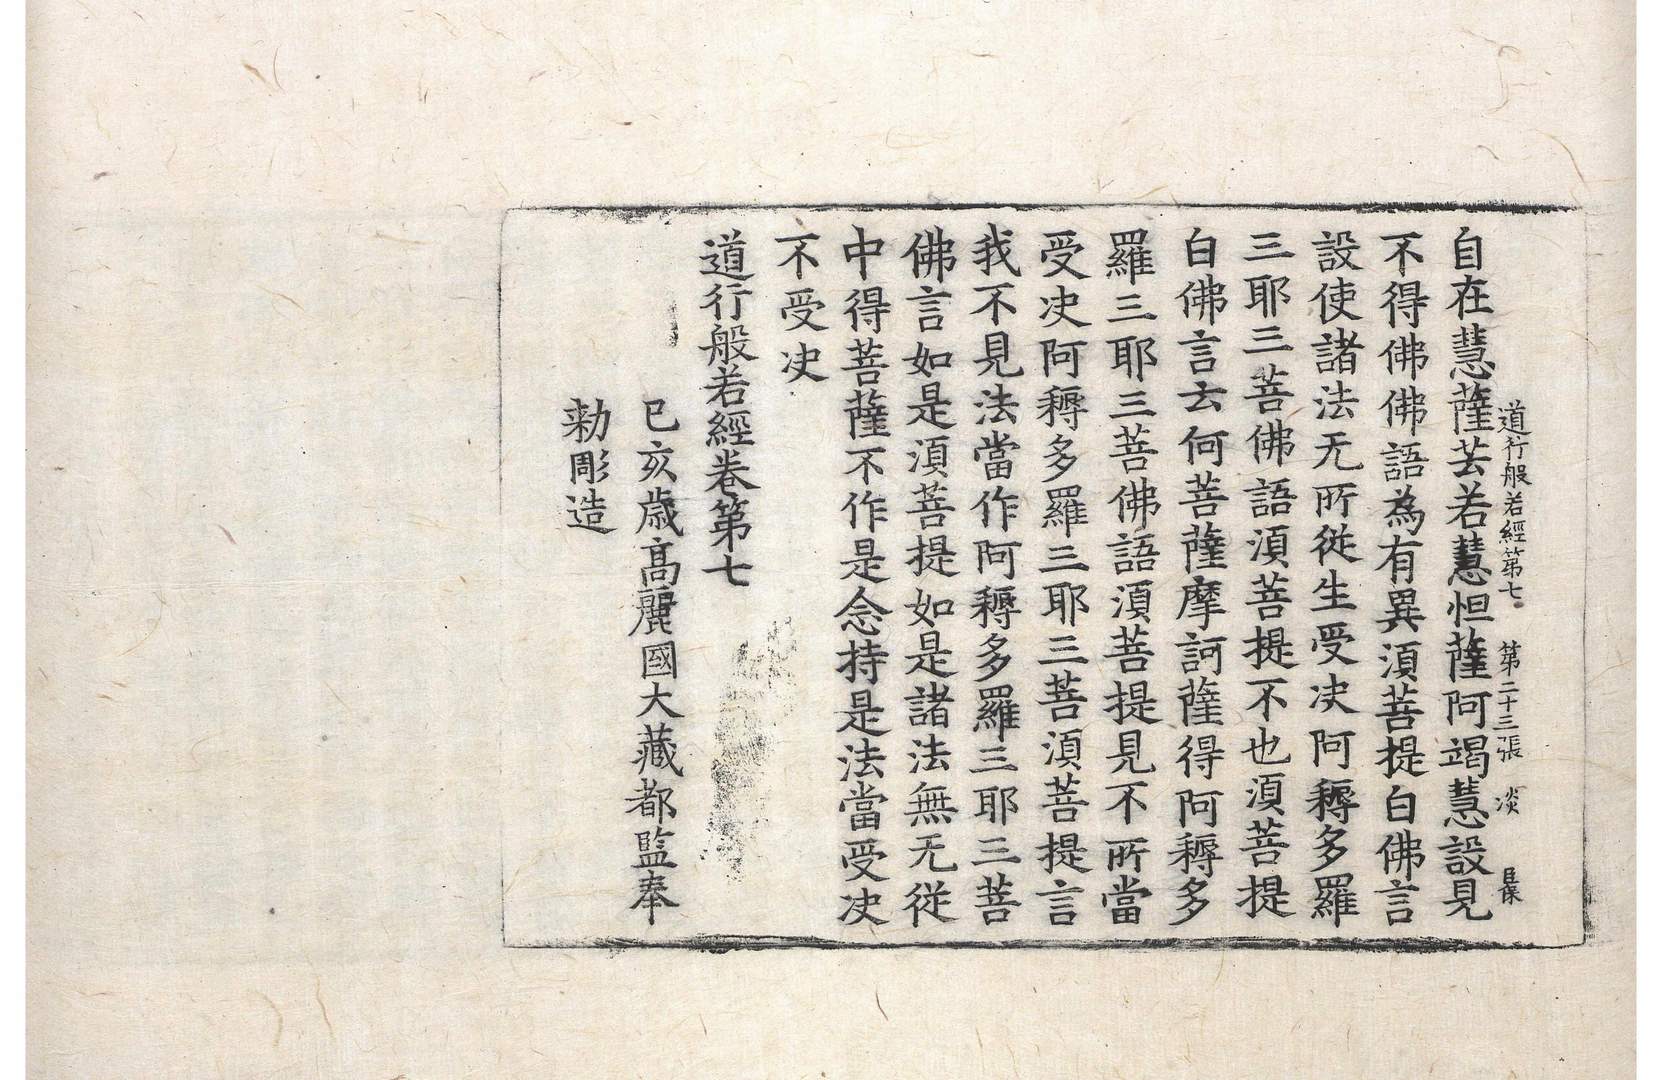 道行般若經第七 第二十三張 淡 㒷
自在慧薩芸若慧怛薩阿竭慧設見
不得佛佛語為有異湏菩提白佛言
設使諸法无所從生受决阿耨多羅
三耶三菩佛語湏菩提不也湏菩提
白佛言云何菩薩摩訶薩得阿耨多
羅三耶三菩佛語湏菩提見不所當
受决阿耨多羅三耶三菩湏菩提言
我不見法當作阿耨多羅三耶三菩
佛言如是湏菩提如是諸法無无從
中得菩薩不作是念持是法當受决
不受决
道行般若經卷第七
己亥歲高麗國大藏都監奉
勅彫造